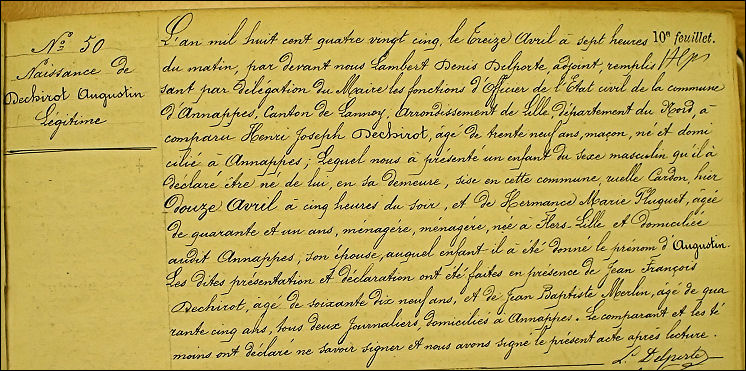 N° 50
Naissance de
Dechirot Augustin
Légitime
10e feuillet.
L'an mil huit cent quatre vingt cinq, le Treize Avril à sept heures
du matin, par devant nous Lambert Denis Delporte, adjoint, remplis
sant par délégation du Maire les fonctions d'Officier de l'Etat civil de la commune
d'Annappes, Canton de Lannoy, Arrondissement de Lille, département du Nord, à
comparu Henri Joseph Dechirot, agé de trente neuf ans, maçon, né et domi
cilié à Annappes; Lequel nous à présenté un enfant du sexe masculin qu'il à
déclaré être né de lui, en sa demeure, sise en cette commune, ruelle Cardon, hier
Douze Avril à cinq heures du soir, et de Hermance Marie Fluquet, âgée
de quarante et un ans, ménagère, ménagère, née à Flers-Lille et domiciliée
audit Annappes, son épouse, auquel enfant il à été donné le prénom d'Augustin.
Les dites présentation et déclaration ont été faites en présence de Jean François
Dechirot, agé de soixante dix neuf ans, et de Jean Baptiste Merlin, âgé de qua
rante cinq ans, tous deux Journaliers, domiciliés à Annappes. Le comparant et les té
moins ont déclaré ne savoir signer et nous avons signé le présent acte après lecture.
L. Delporte